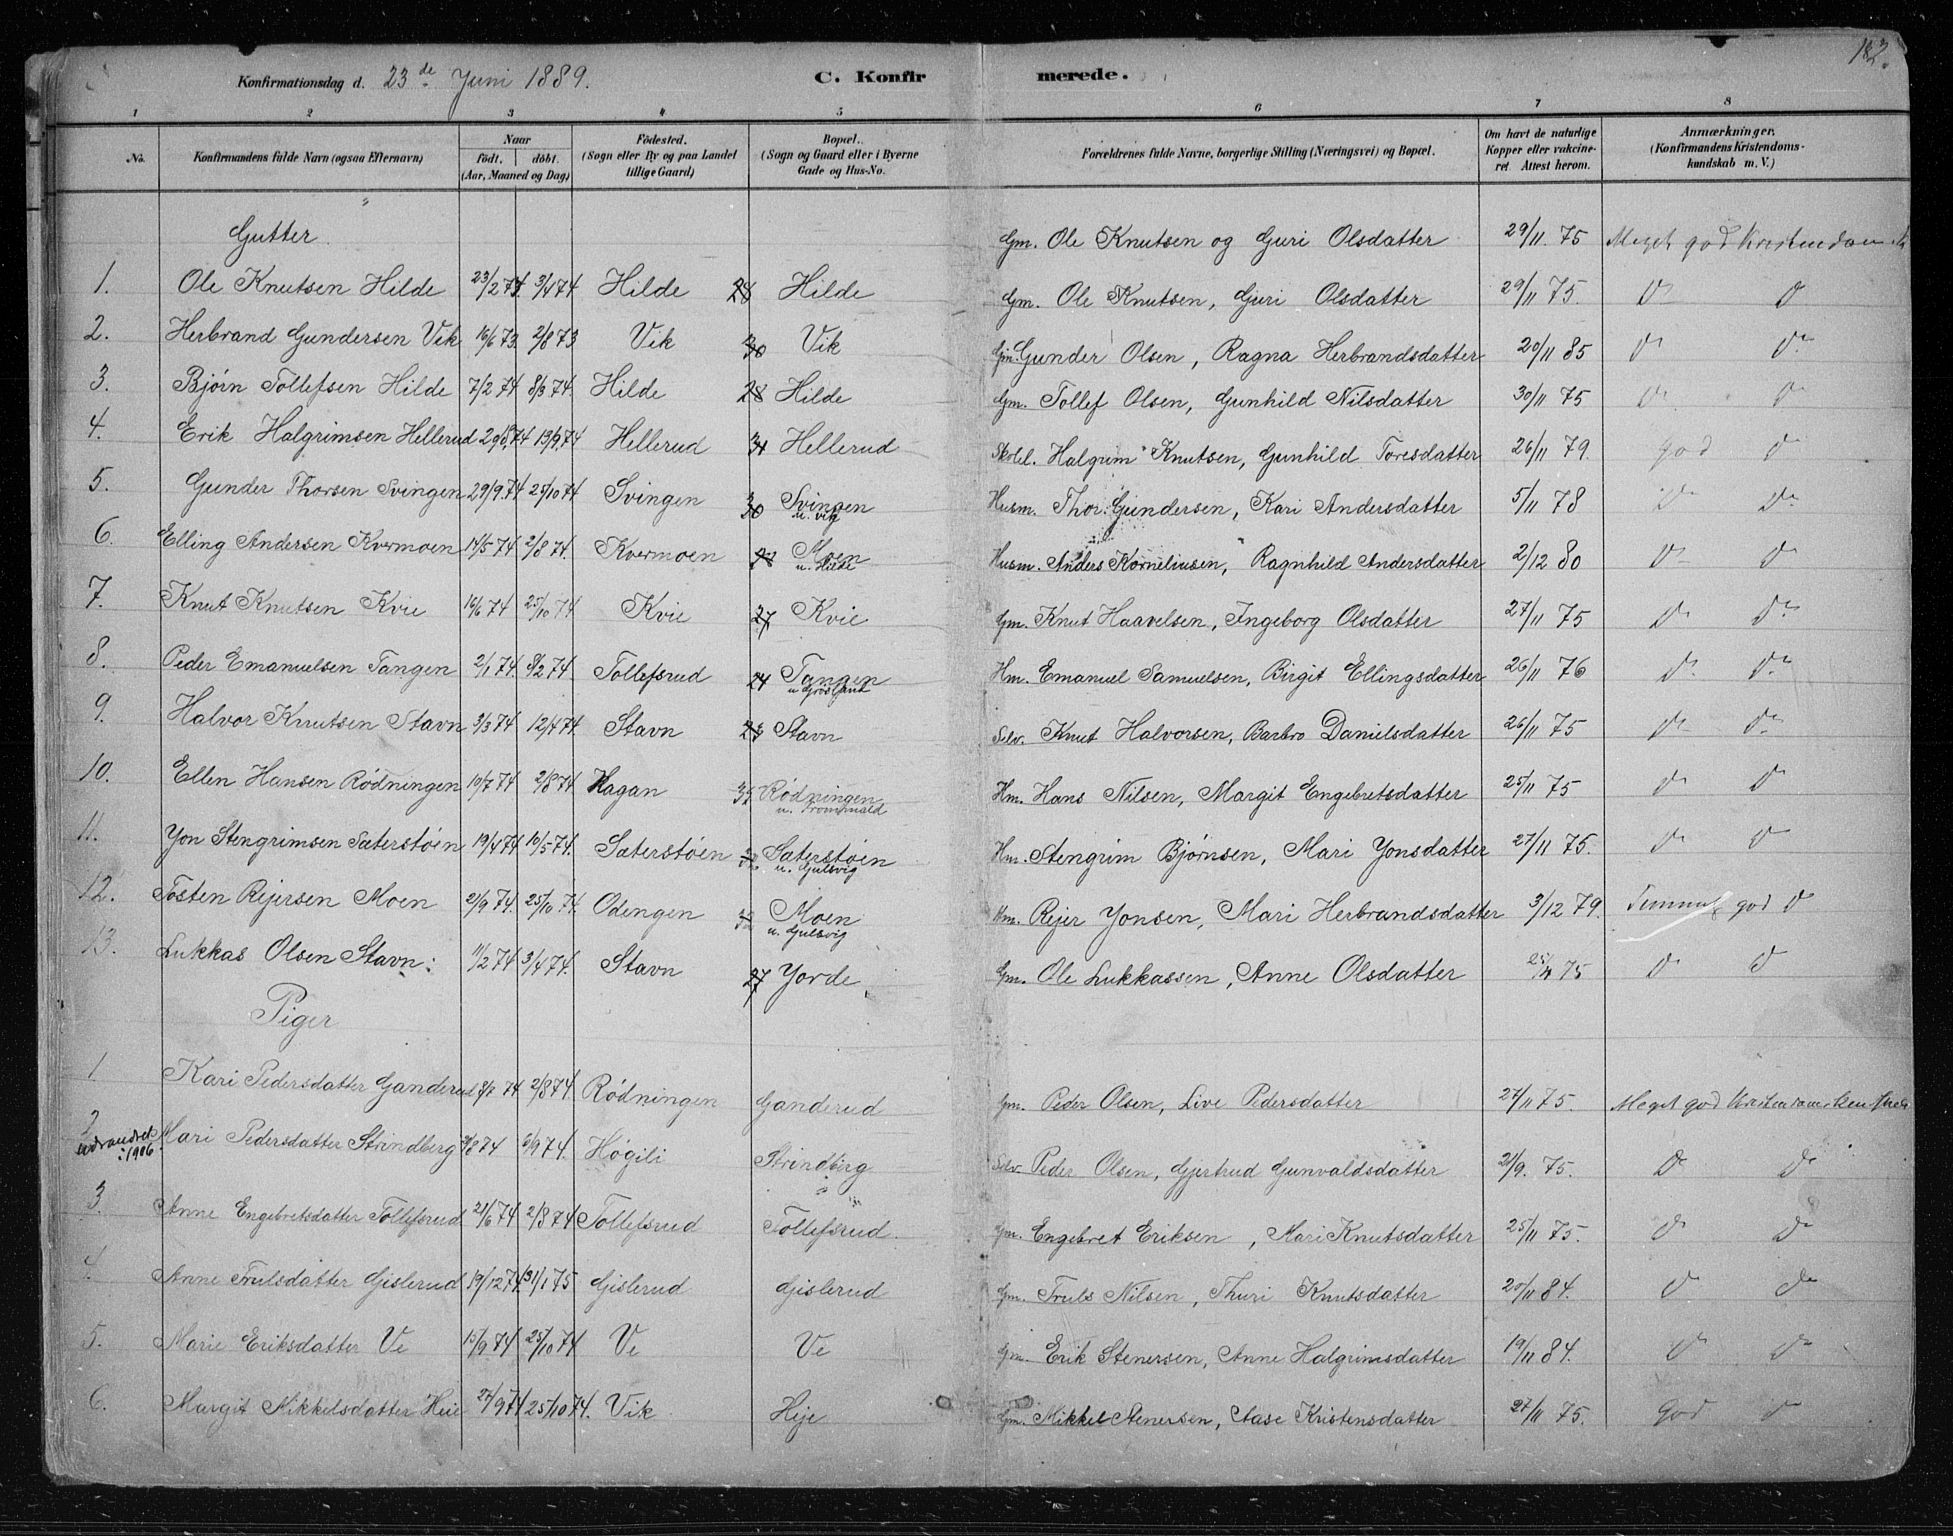 182.
Konfirmationsdag d. 23de Juni 1889. C. Konfirmerede.
1 2 3 4 5 6 7 8
No. Konfirmandens fulde Navn (ogsaa Efternavn) Naar födt. döbt. (Aar, Maaned og Dag) Födested. (Sogn eller By og paa Landet tillige Gaard) Bopæl. (Sogn og Gaard eller i Byerne Gade og Hus-No. Forældrenes fulde Navne, borgerlige Stilling (Næringsvei) og Bopæl. Om havt de naturlige Kopper eller vakcineret. Attest herom. Anmærkninger. (Konfirmandens Kristendomskundskab m. V.)
Gutter. Gm. Ole Knutsen og Guri Olsdatter 29/11. 75 Meget god Kristendoms
1. Ole Knutsen Hilde 23/2 73. 3/4 74 Hilde 28 Hilde Gm. Ole Knutsen, Guri Olsdatter 29/11 75. D D
2. Herbrand Gundersen Vik 16/6 73. 2/8 73 Vik 30 Vik Gm. Gunder Olsen, Ragna Herbrandsdatter 20/11 85 Do Do
3. Bjørn Tollefsen Hilde 7/2 74 8/3 74. Hilde 28 Hilde Gm. Tollef Olsen, Gunhild Nilsdatter 30/11 75 Do Do
4. Erik Halgrimsen Hellerud 29/8 74 13/9 74 Hellerud 31 Hellerud Skolel. Halgrim Knutsen, Gunhild Toresdatter 26/11 79. god Do
5. Gunder Thorsen Svingen 29/9. 74 25/10 74 Svingen 30 Svingen u. Vik Husm. Thor Gundersen, Kari Andersdatter 5/11 78 Do Do
6. Elling Andersen Kvermoen 14/5 74 2/8 74. Kvermoen 28 Moen u. Hilde Husm. Anders Korneliusen, Ragnhild Andersdatter 2/12 80 Do Do
7. Knut Knutsen Kvie 16/6 74 25/10 74 Kvie 27 Kvie Gm. Knut Haavelsen, Ingeborg Olsdatter 27/11 75 Do Do
8. Peder Emanuelsen Tangen 2/1 74. 8/2 74 Tollefsrud 24 Tangen Hm. Emanuel Samuelsen, Birgit Ellingsdatter 26/11 76 Do Do
9. Halvor Knutsen Stavn 3/3 74 12/4 74. Stavn 27 Stavn Selv. Knut Halvorsen, Barbro Danielsdatter 26/11 75 Do Do
10. Ellen Hansen Rødningen 10/7 74 2/8 74 Hagan 35 Rødningen Hm. Hans Nilsen, Margit Engebretsdatter 25/11 75 Do Do
11. Yon Stengrimsen Sæterstøen 19/4 74 10/5 74. Sæterstøen 32 Sæterstøen u. Gulsvig Hm. Stengrim Bjørnsen, Mari Yonsdatter 27/11 75. Do Do
12. Tosten Rejersen Moen 21/9 74. 25/10 74. Odengen Moen u. Gulsvig Hm. Rejer Yonsen, Mari Herbrandsdatter 3/12 79. Temmel. god D
13. Lukkas Olsen Stavn. 11/2 74 3/4 74. Stavn 27 Yorde Gm. Ole Lukkassen, Anne Olsdatter 25/11 75 Do Do
Piger
1. Kari Pedersdatter Ganderud 8/7 74 2/8 74. Rødningen Ganderud Gm. Peder Olsen, Live Pedersdatter 27/11 75. Meget god Kristendomskendskab
2. Mari Pedersdatter Strindberg 8 74 6/9 74. Høgili Strindberg Selv. Peder Olsen, Gjertrud Gunvaldsdatter 21/9. 75. Do Do
udvandret 1906
3. Anne Engebretsdatter Tollefsrud 21/6 74 2/8 74 Tollefsrud Tollefsrud. Gm. Engebret Eriksen, Mari Knutsdatter 25/11 75. Do Do
4. Anne Trulsdatter Gislerud 19/12 74. 31/1 75. Gislerud Gislerud Gm. Truls Nilsen, Thuri Knutsdatter 20/11 84. Do Do
5. Marie Eriksdatter Ve 15/9 74 25/10 74 Ve Ve Gm. Erik Stenersen, Anne Halgrimsdatter 19/11 84. Do Do
6. Margit Mikkelsdatter Heie 27/9 74 25/10 74. Vik Heje Gm. Mikkel Stenersen, Aase Kristensdatter 27/11 75. God Do